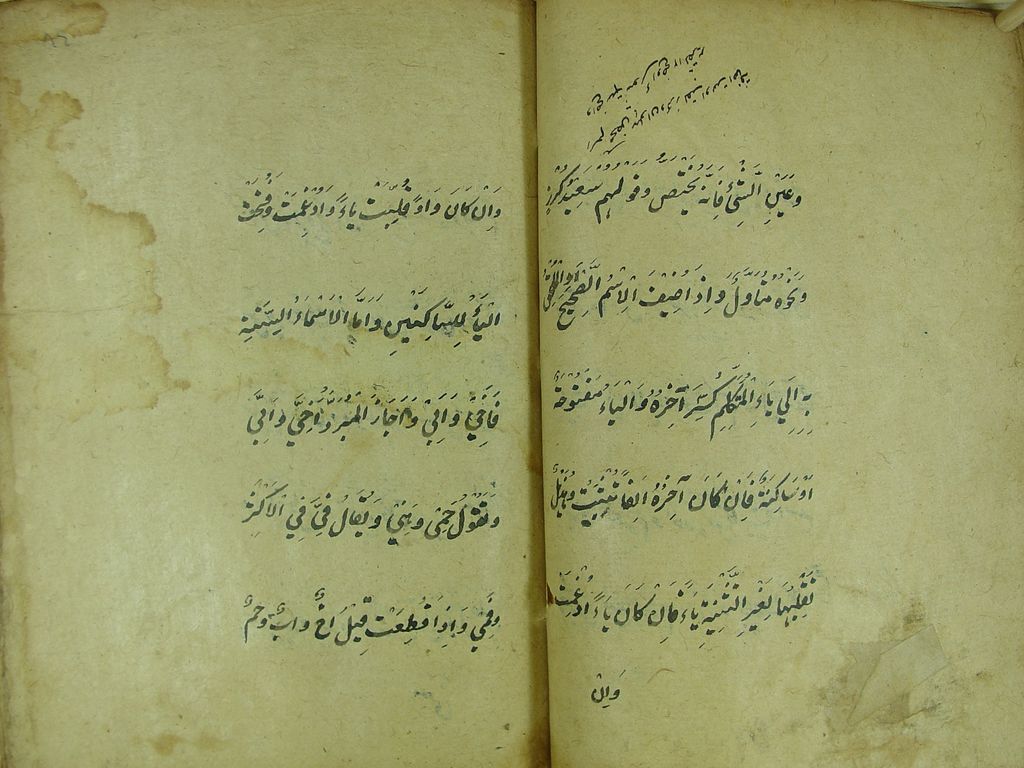 وَعَيْنِ الشَّيْءِ فَاِنَّهُ يَخْتَصُّ وَقَوْلُهُمْ سَعِيْدُ كُرْزٍ
وَنَحْوُهُ مُتَاَوَّلٌ وَاِذَا اُضِيْفَ الْاِسْمُ الصَّحِيْحُ اَوِ الْمُلْحَقُ
بِهٖ اِلٰى يَاءِ الْمُتَكَلِّمِ كُسِرَ آخِرُهُ وَالْيَاءُ مَفْتُوْحَةٌ
اَوْ سَاكِنَةٌ فَاِنْ كَانَ آخِرُهُ اَلِفًا تُثْبَتُ وَهُذَيْلٌ
تَقْلِبُهَا لِغَيْرِ التَّثْنِيَةِ يَاءً فَاِنْ كَانَ يَاءً اُدْغِمَتْ
وَاِنْ
وَاِنْ كَانَ وَاوًا قُلِبَتْ يَاءً وَاُدْغِمَتْ وَفُتِحَتْ
الْيَاءُ لِلسَّاكِنَيْنِ وَاَمَّا الْاَسْمَاءُ السِّتَّةُ
فَاَخِيْ وَاَبِيْ وَاَجَازَ الْمُبَرَّدُ اَخِيَّ وَاَبِيَّ
وَتَقُوْلُ حَمِيْ وَهَنِيْ وَيُقَالُ فِيَّ فِي الْاَكْثَرِ
وَفَمِيْ وَاِذَا قُطِعَتْ قِيْلَ اَخٌ وَاَبٌ وَحَمٌ